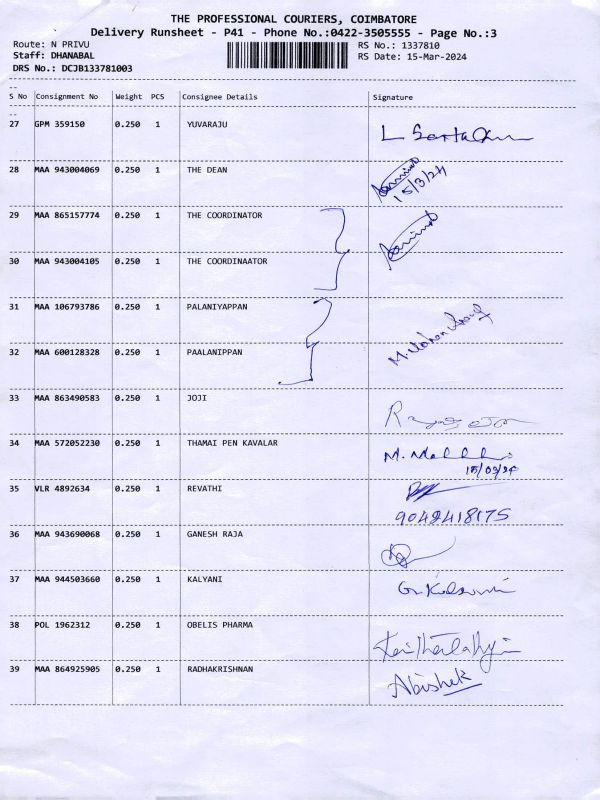 THE PROFESSIONAL COURIERS, COIMBATORE
Delivery Runsheet - P41 - Phone No.:0422-3505555 - Page No.:3
Route: N PRIVU
Staff: DHANABAL
DRS No.: DCJB133781003
RS No.: 1337810
RS Date: 15-Mar-2024
--
S No Consignment No Weight PCS Consignee Details Signature
--
27 GPM 359150 0.250 1 YUVARAJU
28 MAA 943004069 0.250 1 THE DEAN
15/3/24
29 MAA 865157774 0.250 1 THE COORDINATOR
30 MAA 943004105 0.250 1 THE COORDINAATOR
31 MAA 106793786 0.250 1 PALANIYAPPAN
32 MAA 600128328 0.250 1 PAALANIPPAN
33 MAA 863490583 0.250 1 JOJI
34 MAA 572052230 0.250 1 THAMAI PEN KAVALAR
15/03/24
35 VLR 4892634 0.250 1 REVATHI
9042418175
36 MAA 943690068 0.250 1 GANESH RAJA
37 MAA 944503660 0.250 1 KALYANI
38 POL 1962312 0.250 1 OBELIS PHARMA
39 MAA 864925905 0.250 1 RADHAKRISHNAN Abishek